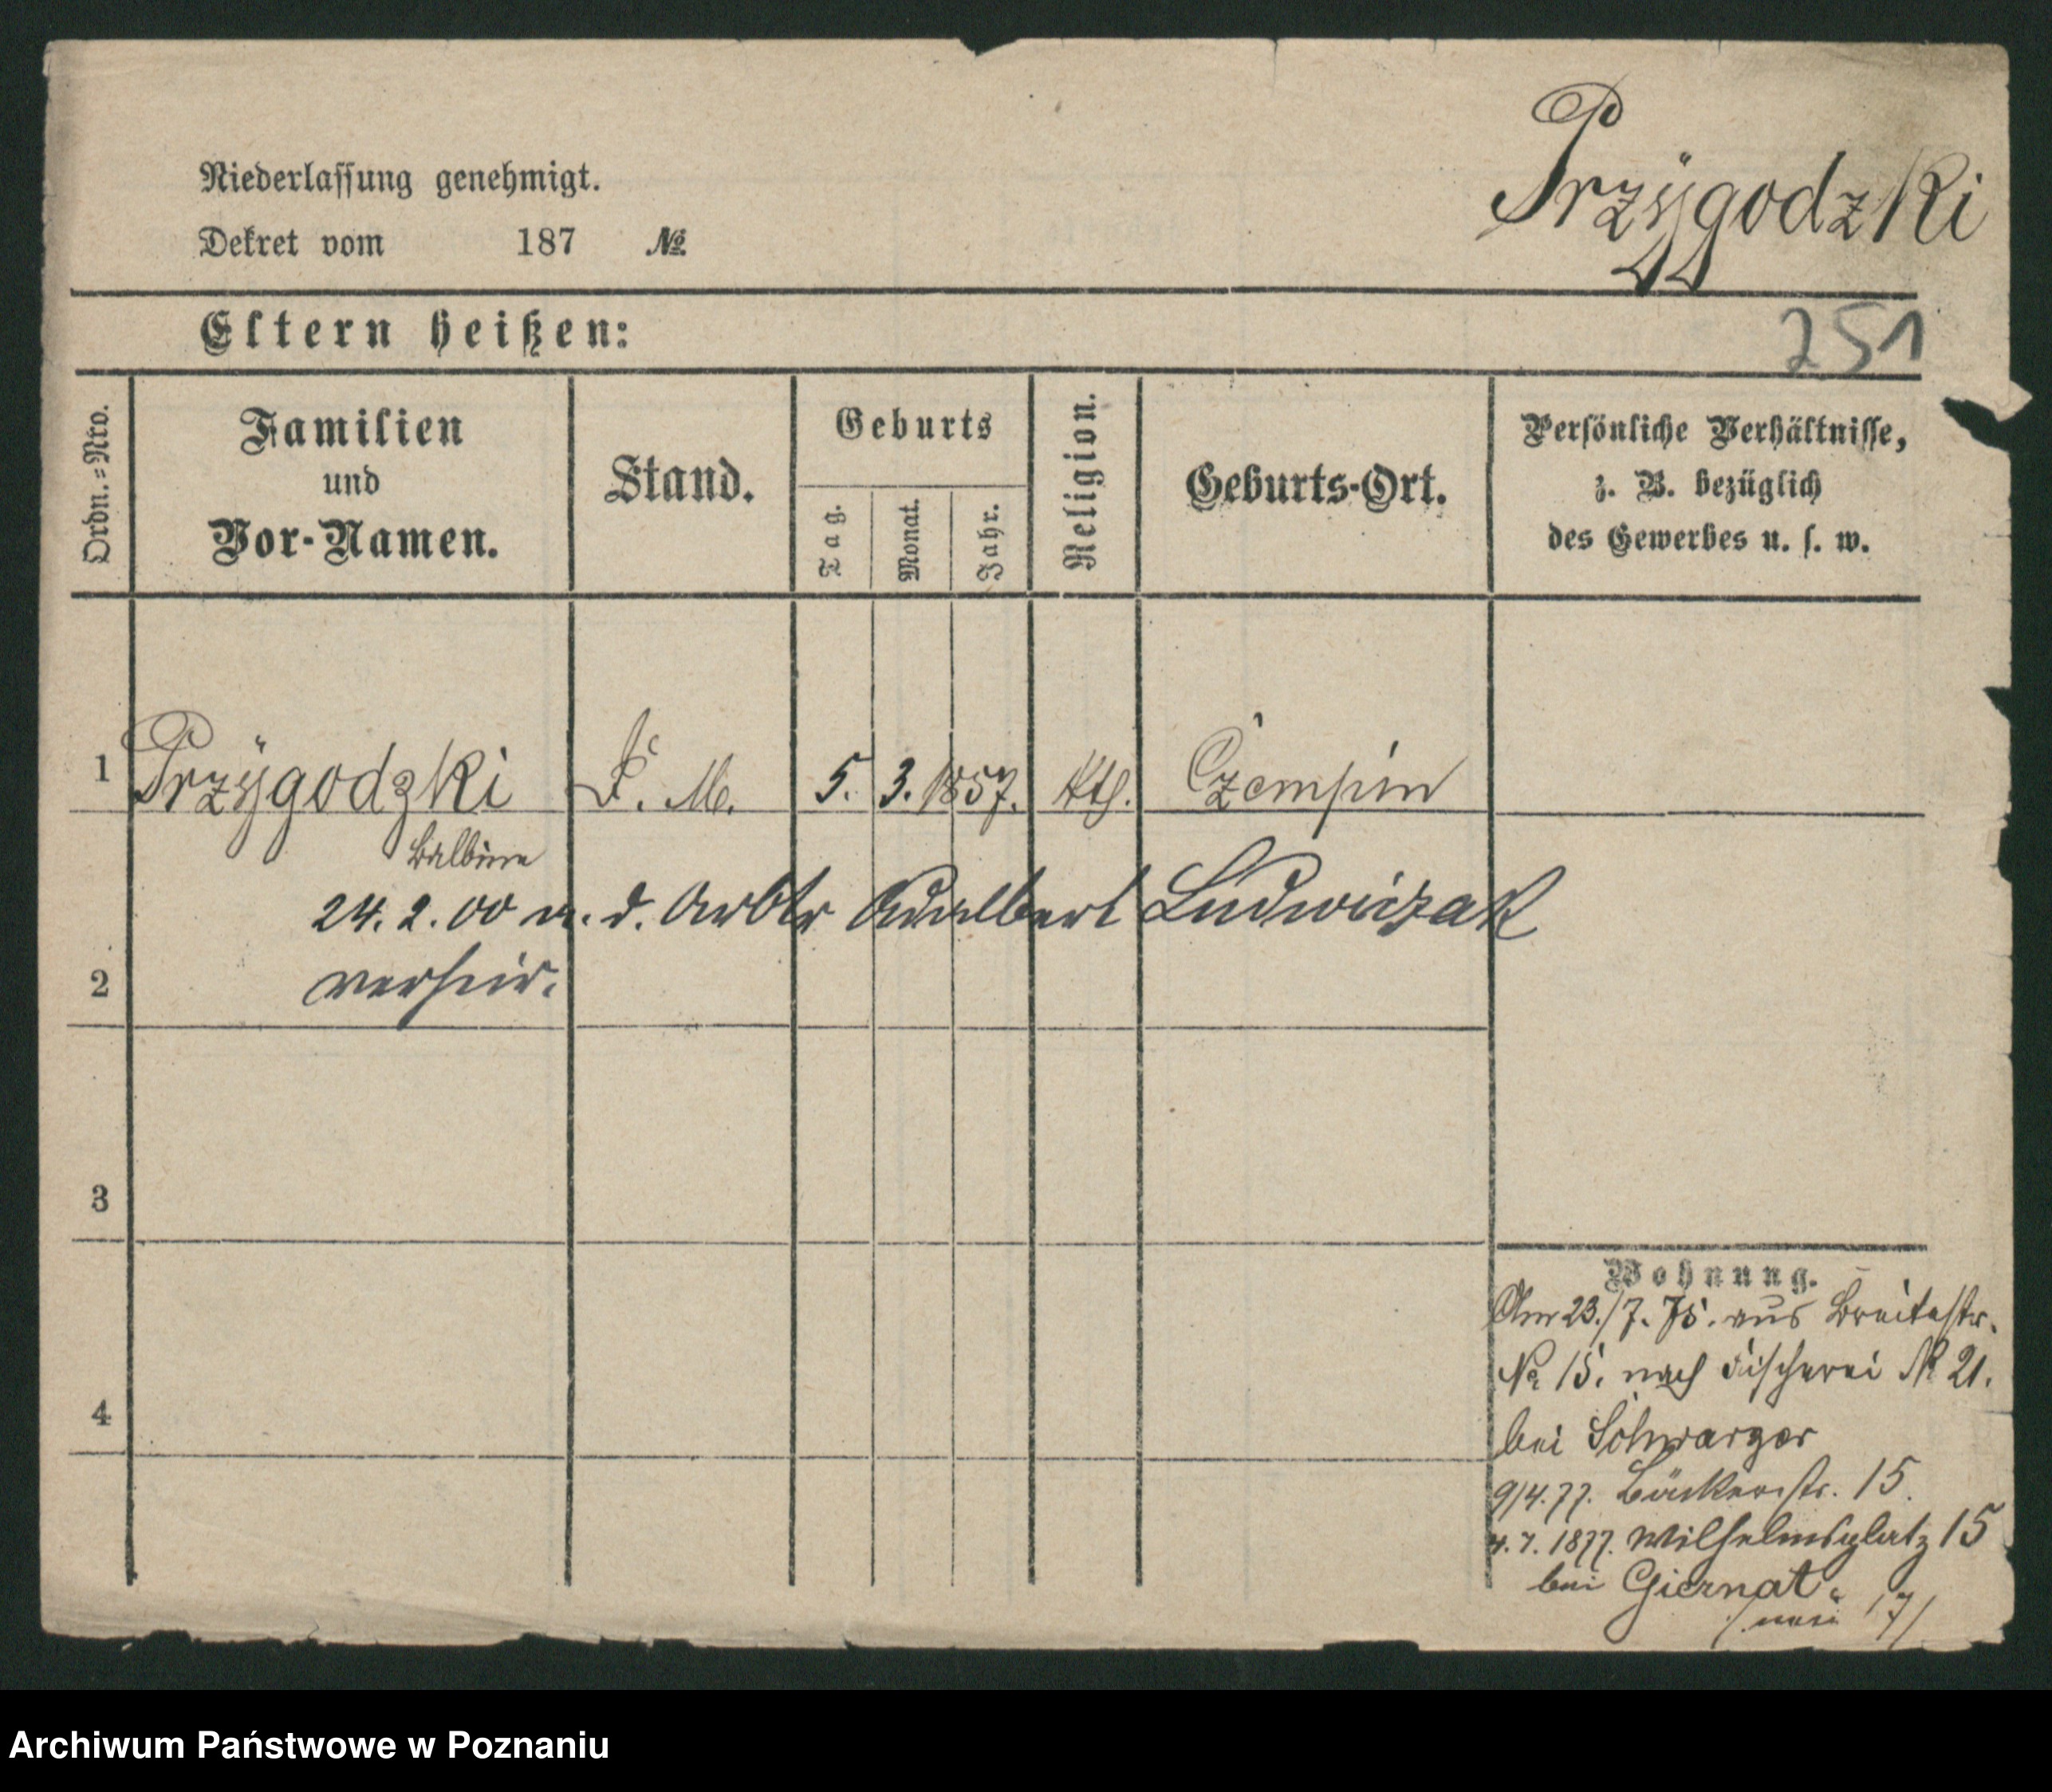 Przÿgodzki
Niederlassung genehmigt.
Dekret vom 187 №
251
Eltern heißen:
Ordn.=Nro.
Familien
und
Vor-Namen.
Stand.
Geburts
Tag.
Monat.
Jahr.
Religion.
Geburts-Ort.
Persönliche Verhältnisse,
z. B. bezüglich
des Gewerbes u. s. w.
1 Przÿgodzki M. 5. 3. 1857. kth. Czempin
Balbina
24. 2. 00 m. d. Arbtr Adalbert Ludwiczak
2 verheir.
3
4
Wohnung.
Am 23./7. 75. aus Breitestr.
No 15. nach Fischerei No 21.
bei Schwarzer
9/4. 77. Bäckerstr. 15.
4. 7. 1877. Wilhelmsplatz 15
bei Giernat
17/
Archiwum Państwowe w Poznaniu